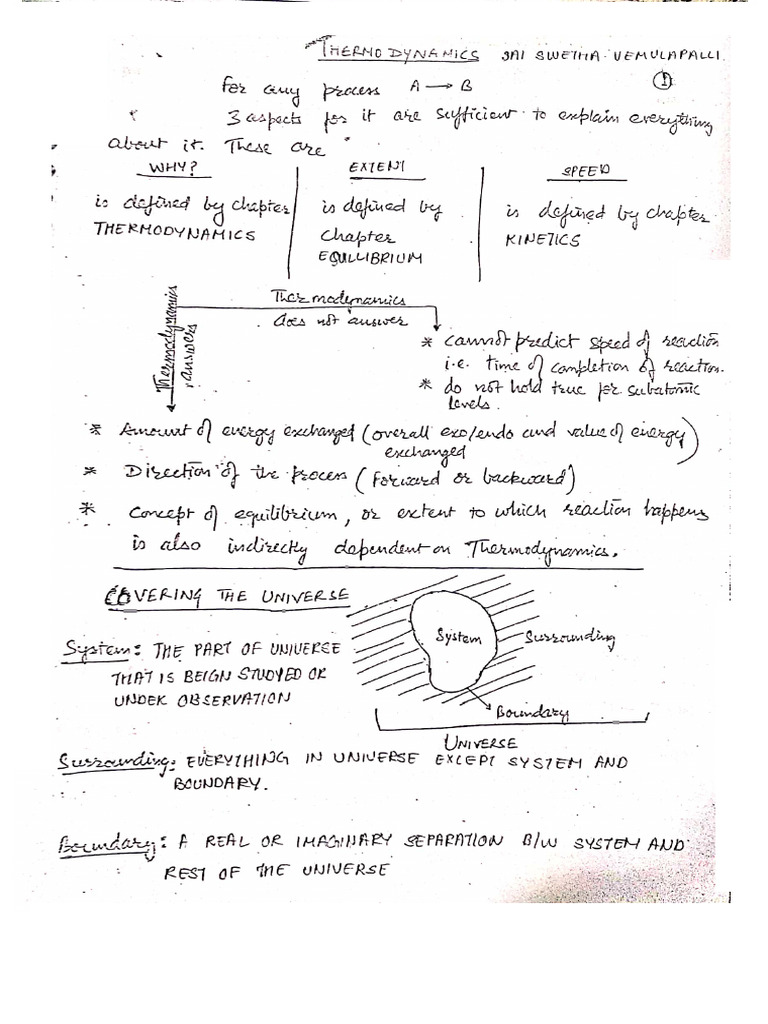 THERMODYNAMICS JAI SWETHA VEMULAPALLI
1
For any process A → B
3 aspects for it are sufficient to explain everything
about it. These are
WHY?
is defined by chapter
THERMODYNAMICS
EXTENT
is defined by
Chapter
EQUILIBRIUM
SPEED
is defined by chapter
KINETICS
Thermodynamics
answers
Thermodynamics
does not answer
* cannot predict speed of reaction
i.e. time of completion of reaction.
* do not hold true for subatomic
levels.
* Amount of energy exchanged (overall exo/endo and value of energy
exchanged)
* Direction of the process (Forward or backward)
* Concept of equilibrium, or extent to which reaction happens
is also indirectly dependent on Thermodynamics.
COVERING THE UNIVERSE
System
Surrounding
Boundary
UNIVERSE
System: THE PART OF UNIVERSE
THAT IS BEIGN STUDYED OR
UNDER OBSERVATION
Surrounding: EVERYTHING IN UNIVERSE EXCEPT SYSTEM AND
BOUNDARY.
Boundary: A REAL OR IMAGINARY SEPARATION B/W SYSTEM AND
REST OF THE UNIVERSE